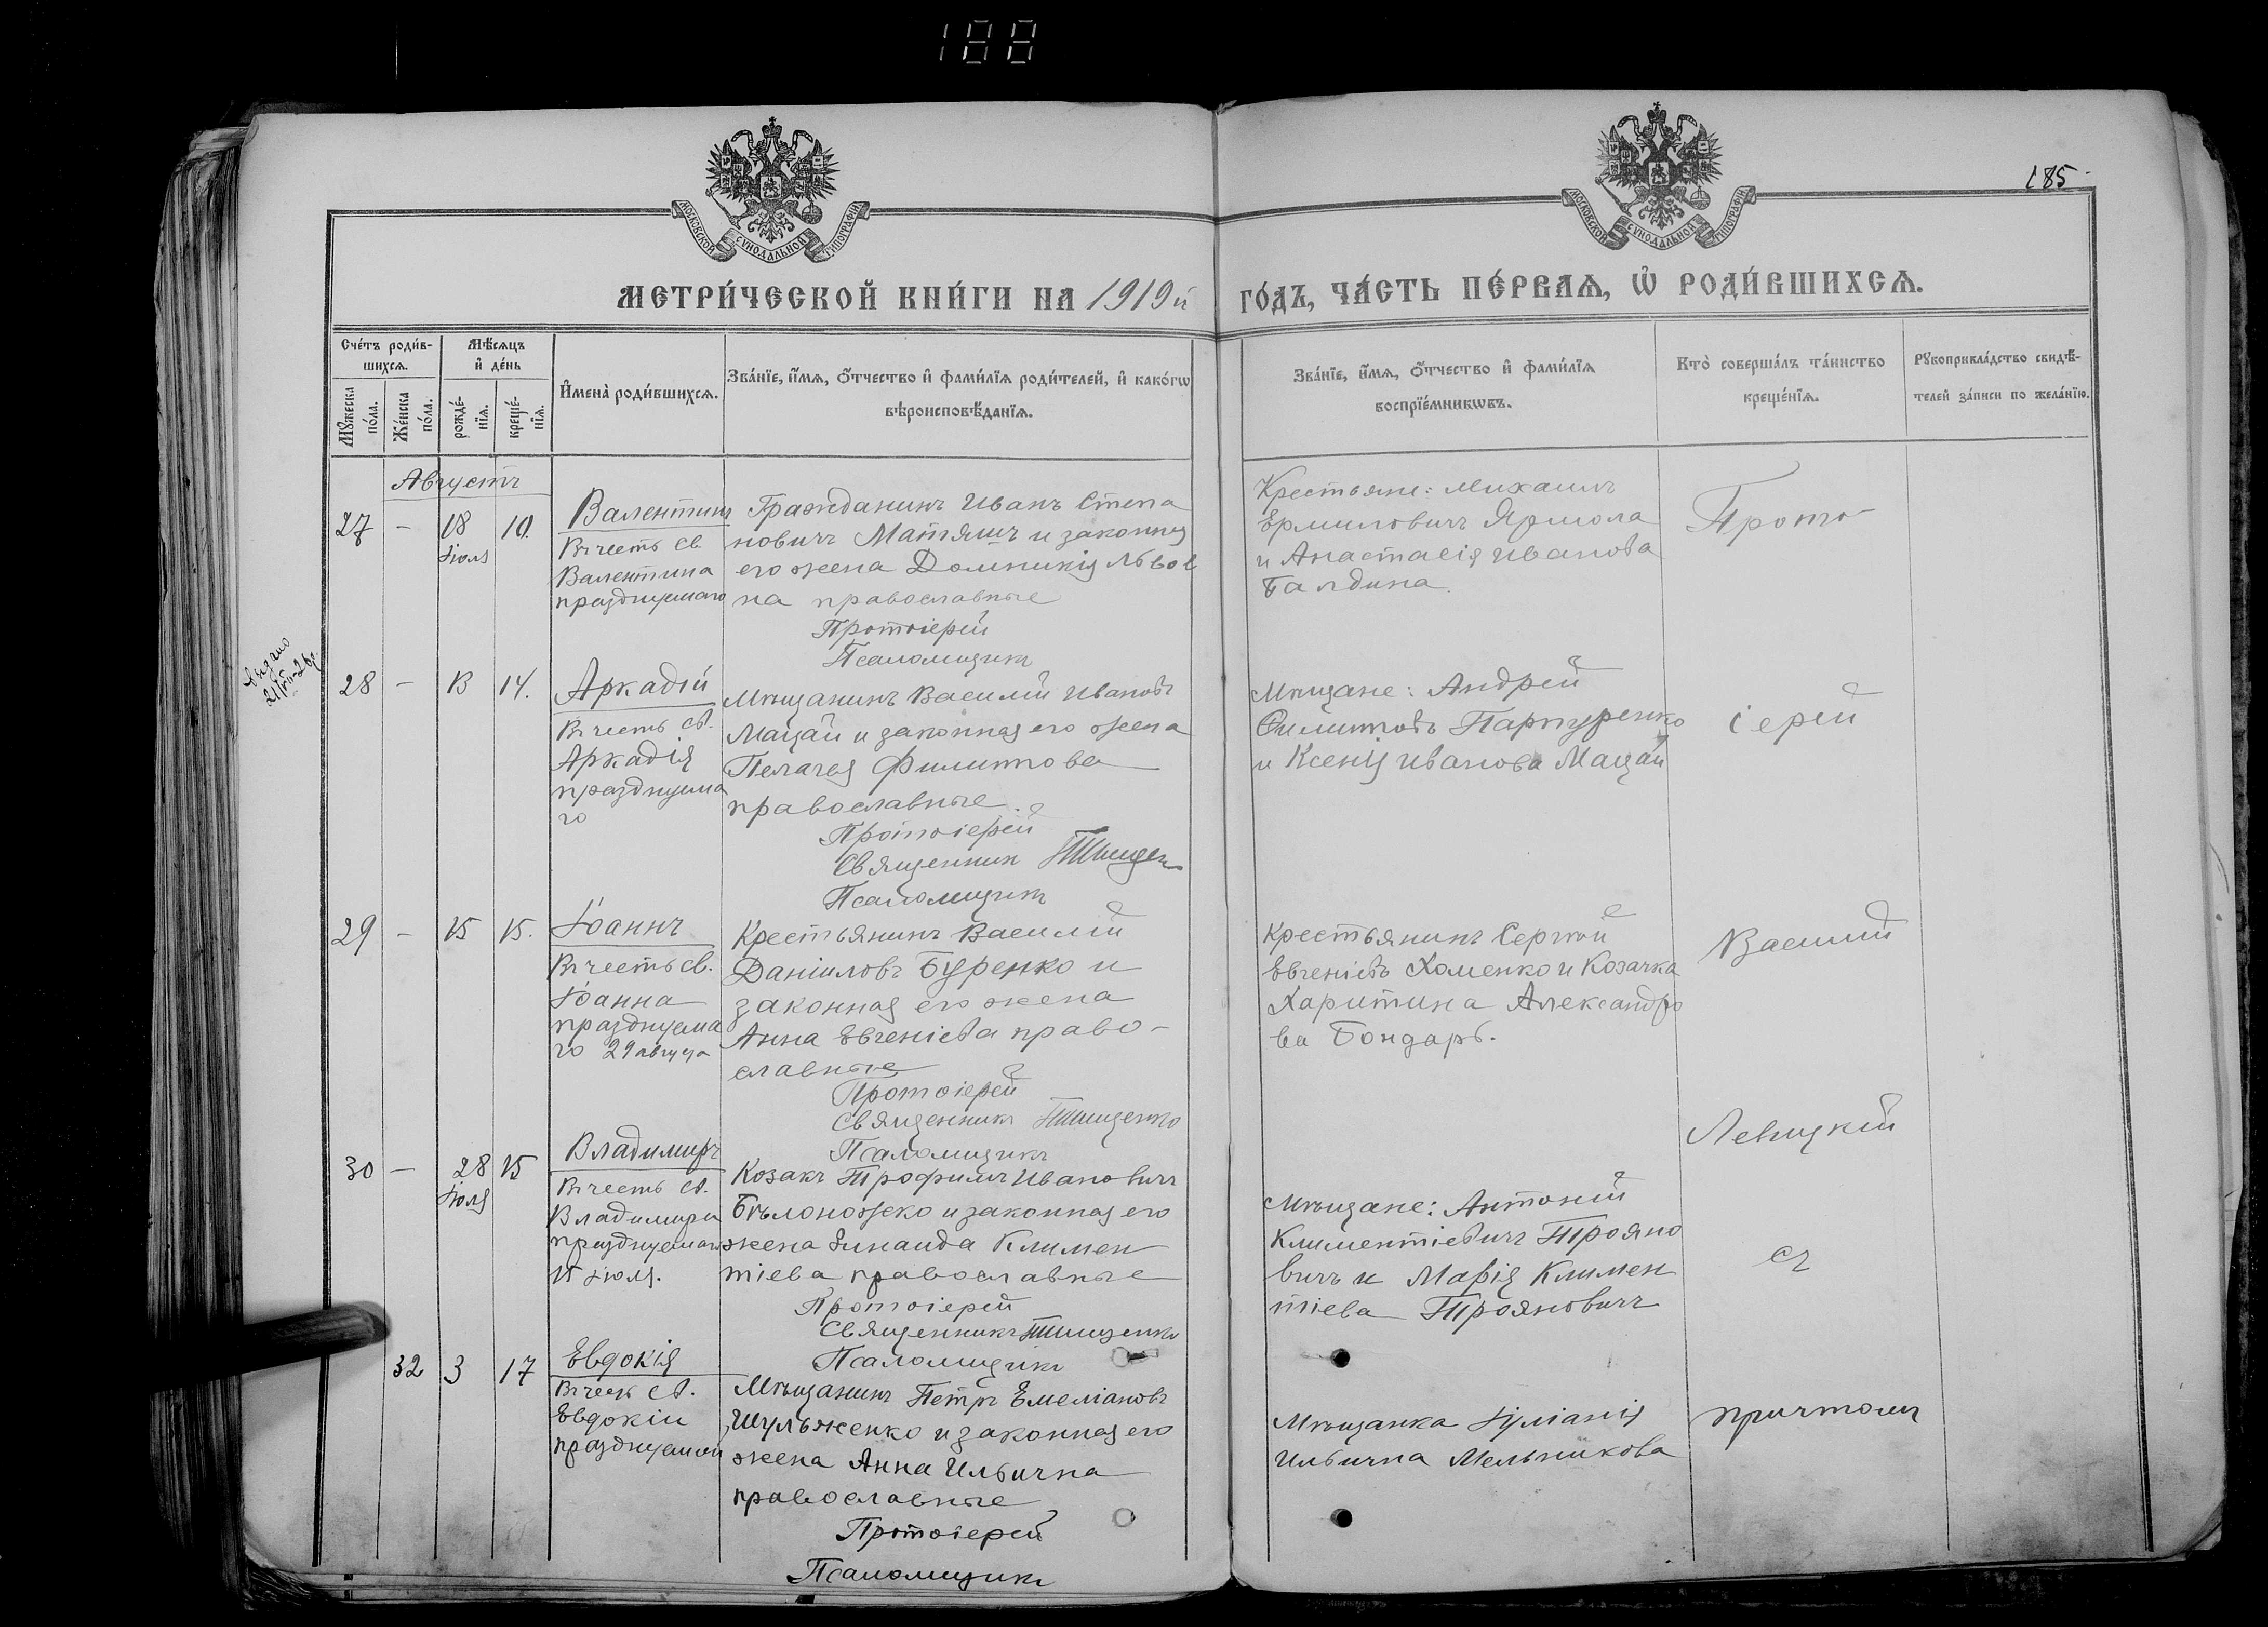 188
185
МОСКОВСКОЙ СУНОДАЛЬНОЙ ТИПОГРАФІИ
МОСКОВСКОЙ СУНОДАЛЬНОЙ ТИПОГРАФІИ
МЕТРИ́ЧЕСКОЙ КНИ́ГИ НА 1919й ГО́ДЪ, ЧА́СТЬ ПЕ́РВАѦ, Ѡ҆ РОДИ́ВШИХСѦ.
Сче́тъ роди́в-
шихсѧ.
Мꙋ́жеска по́ла.
Же́нска по́ла.
Мѣ́сѧцъ
и҆ де́нь
рожде́-
нїѧ.
креще́-
нїѧ.
И҆мена̀ роди́вшихсѧ.
Зва́нїе, и҆́мѧ, ѻ҆́тчество и҆ фами́лїѧ роди́телей, и҆ како́гѡ
вѣроисповѣ́данїѧ.
Зва́нїе, и҆́мѧ, ѻ҆́тчество и҆ фами́лїѧ
воспрїе́мникѡвъ.
Кто̀ соверша́лъ та́инство
креще́нїѧ.
Рꙋкоприкла́дство свидѣ́-
телей за́писи по жела́нїю.
Августъ
27 - 18 10.
Іюля
Валентинъ
Въ честь св
Валентина
празднуемаго
Гражданинъ Иванъ Степа
новичъ Матяшъ и законная
его жена Домникія Львов
на православные
Протоіерей
Псаломщикъ
Крестьяне: Михаилъ
Ермиловичъ Ярмола
и Анастасія Иванова
Балдина.
Прото-
выдано
28 - 13 14.
Аркадій
Въ честь св.
Аркадія
празднуема
го
Мѣщанинъ Василій Ивановъ
Мацай и законная его жена
Пелагея Филиппова
православные.
Протоіерей
Священник Тищен
Псаломщикъ
Мѣщане: Андрей
Филиповъ Парпуренко
и Ксенія Иванова Мацай
іерей
29 - 15 15.
Іоаннъ
Въ честь св.
Іоанна
празднуема
го 29 августа
Крестьянинъ Василій
Даніиловъ Буренко и
законная его жена
Анна Евгеніева право-
славные
Протоіерей
Священникъ Тищенко
Псаломщикъ
Крестьянинъ Сергій
Евгеніевъ Хоменко и Козачка
Харитина Александро
ва Бондарь.
Василій
Левицкій
30 - 28 15
Іюля
Владимиръ
Въ честь св.
Владимира
празднуемаго
15 Іюля.
Козакъ Трофимъ Ивановичъ
Бѣлоножко и законная его
жена Зинаида Климен
тіева православные
Протоіерей
Священникъ Тищенко
Псаломщикъ
Мѣщане: Антоній
Климентіевичъ Трояно
вичъ и Марія Климен
тіева Трояновичъ
съ
32 3 17
Евдокія
Въ честь св.
Евдокіи
празднуемой
Мѣщанинъ Петръ Емеліановъ
Шульженко и законная его
жена Анна Ильична
православные
Протоіерей
Псаломщикъ
Мѣщанка Іуліанія
Ильична Мельникова
причтомъ